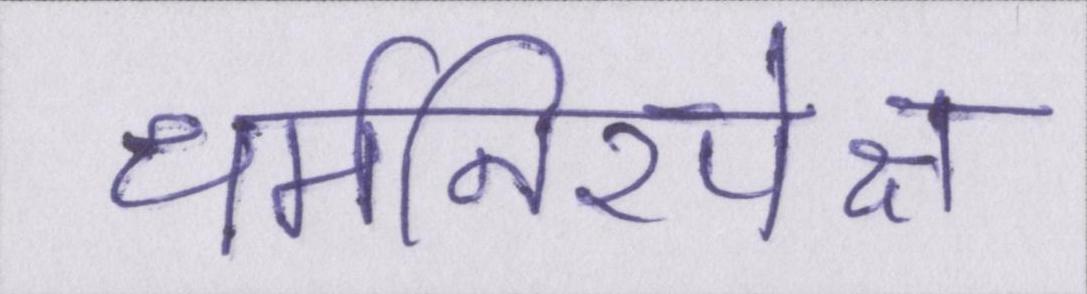 धर्मनिरपेक्ष